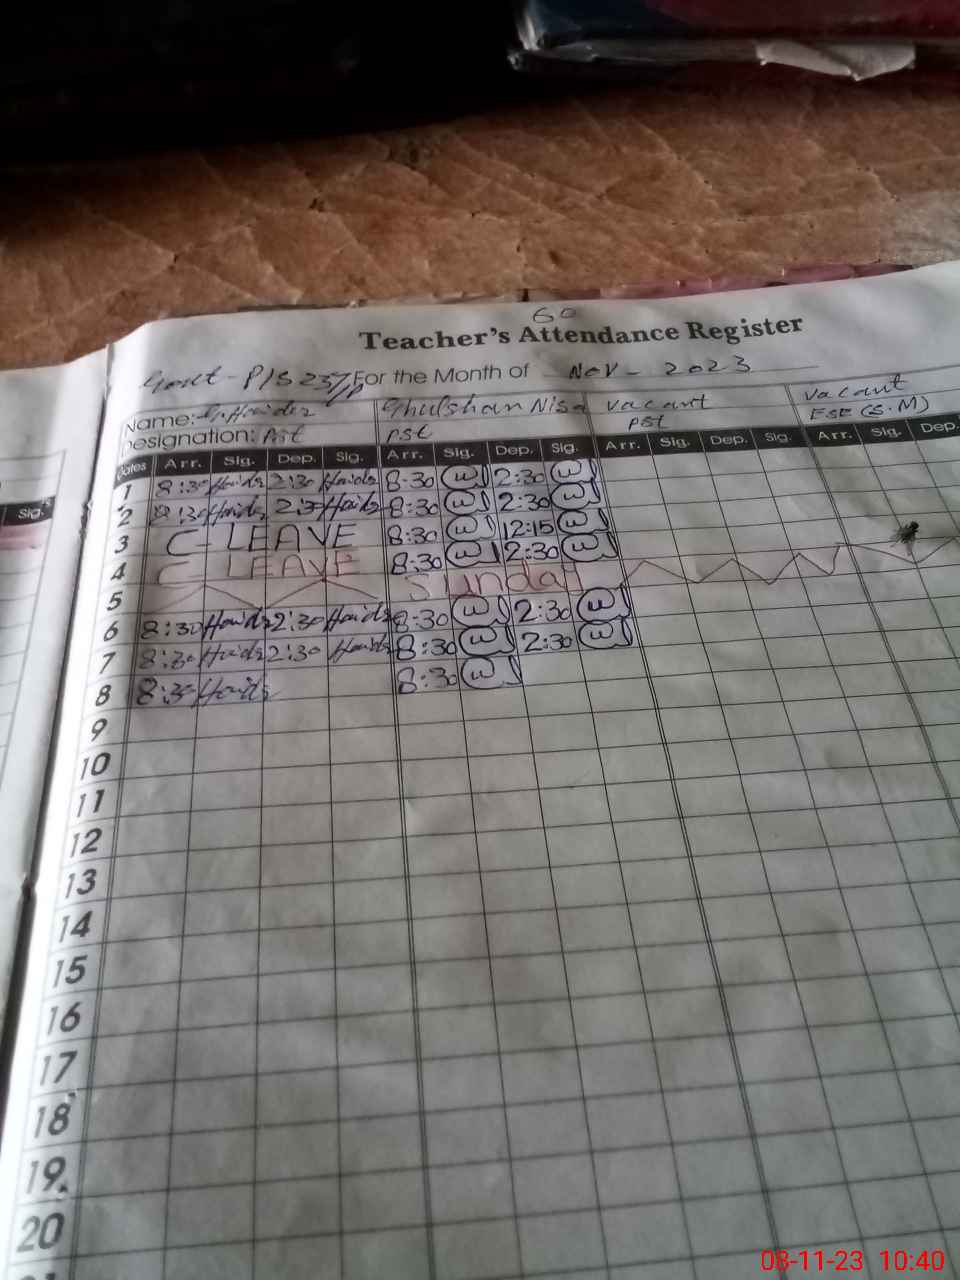 60
Teacher's Attendance Register
Govt - P/S 237/P For the Month of Nov - 2023
Name: G. Haider Ghulshan Nisa vacant vacant
Designation: PST PST ESE (S.M)
Dates Arr. Sig. Dep. Sig. Arr. Sig. Dep. Sig. Arr. Sig. Dep. Sig. Arr. Sig. Dep.
Sig.
1 8:30 Haider 2:30 Haider 8:30 2:30
2 8:30 Haider 2:30 Haider 8:30 2:30
3 C- LEAVE 8:30 12:15
4 C- LEAVE 8:30 2:30
5 Sunday
6 8:30 Haider 2:30 Haider 8:30 2:30
7 8:30 Haider 2:30 Haider 8:30 2:30
8 8:30 Haider 8:30
9
10
11
12
13
14
15
16
17
18
19
20
08-11-23 10:40